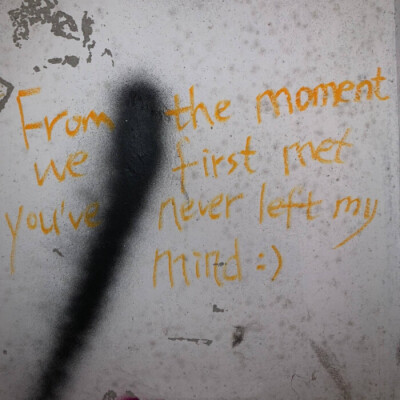 From the moment
we first met
you've never left my
mind :)